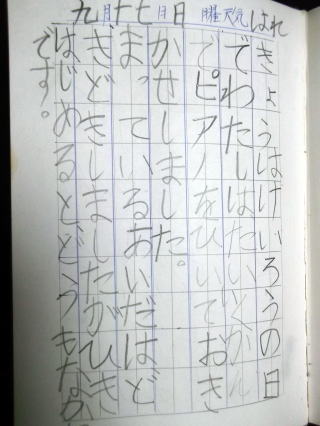 九月十七日日曜天気はれ
きょうはけいろうの日
でわたしはたいくかん
でピアノをひいておき
かせしました。
まっているあいだはど
きどきしましたがひき
はじめるとどうもなか
です。